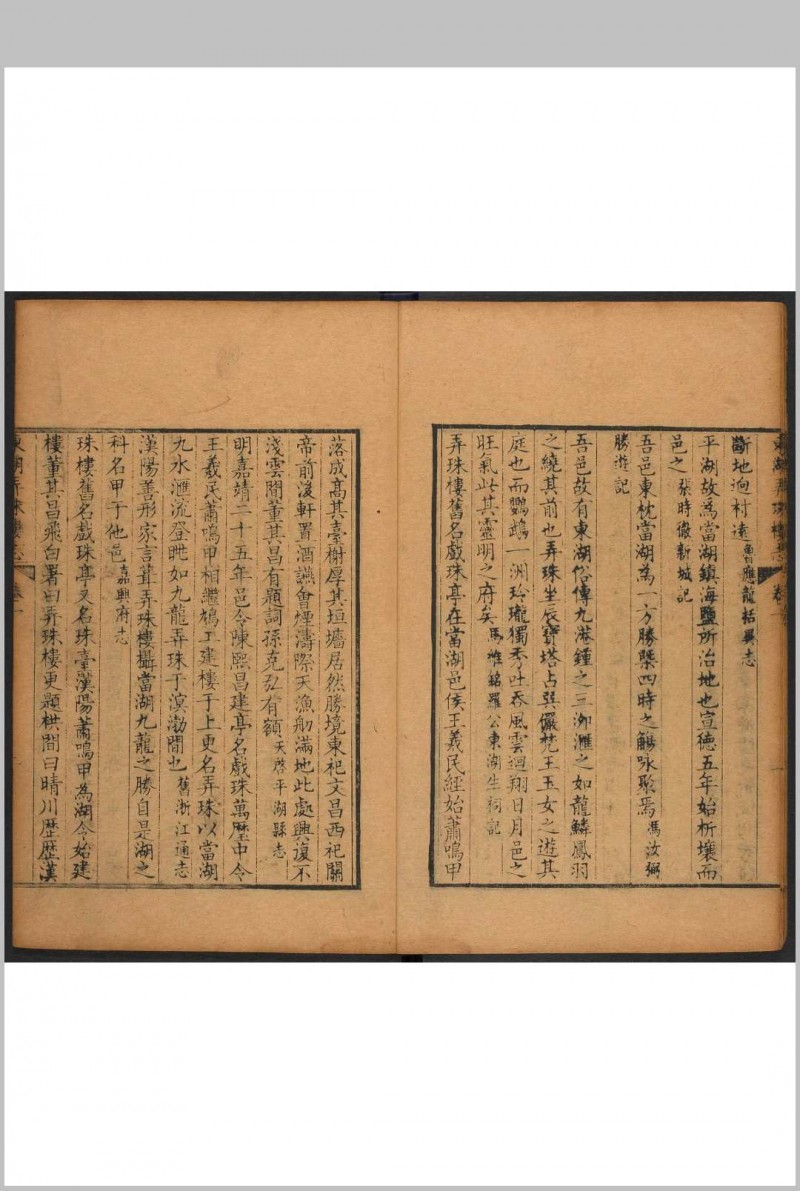 東湖弄珠樓志 卷一
斷地迥村遠 魯應龍括異志
平湖故為當湖鎮海鹽所治地也宣德五年始析壤而
邑之 張時徹新城記
吾邑東枕當湖為一方勝槩四時之觴咏聚焉 馮汝弼
勝遊記
吾邑故有東湖俗傳九港鍾之三泖滙之如龍鱗鳳羽
之繞其前也弄珠坐辰寶塔占巽儼梵王玉女之遊其
庭也而鸚鵡一洲玲瓏獨秀吐吞風雲迴翔日月邑之
旺氣此其靈明之府矣 馬維銘羅公東湖生祠記
弄珠樓舊名戲珠亭在當湖邑侯王義民經始蕭鳴甲
落成髙其臺榭厚其垣墻居然勝境東祀文昌西祀關
帝前後軒置酒讌會煙濤際天漁舠滿地此處興復不
淺雲間董其昌有題詞孫克弘有額 天啓平湖縣志
明嘉靖二十五年邑令陳熙昌建亭名戲珠萬歷中令
王義民蕭鳴甲相繼鳩工建樓于上更名弄珠以當湖
九水滙流登眺如九龍弄珠于溟渤間也 舊浙江通志
漢陽善形家言葺弄珠樓攝當湖九龍之勝自是湖之
科名甲于他邑 嘉興府志
珠樓舊名戲珠亭又名珠臺漢陽蕭鳴甲為湖令始建
樓董其昌飛白署曰弄珠樓更題栱間曰晴川歷歷漢
東湖弄珠樓志 卷一